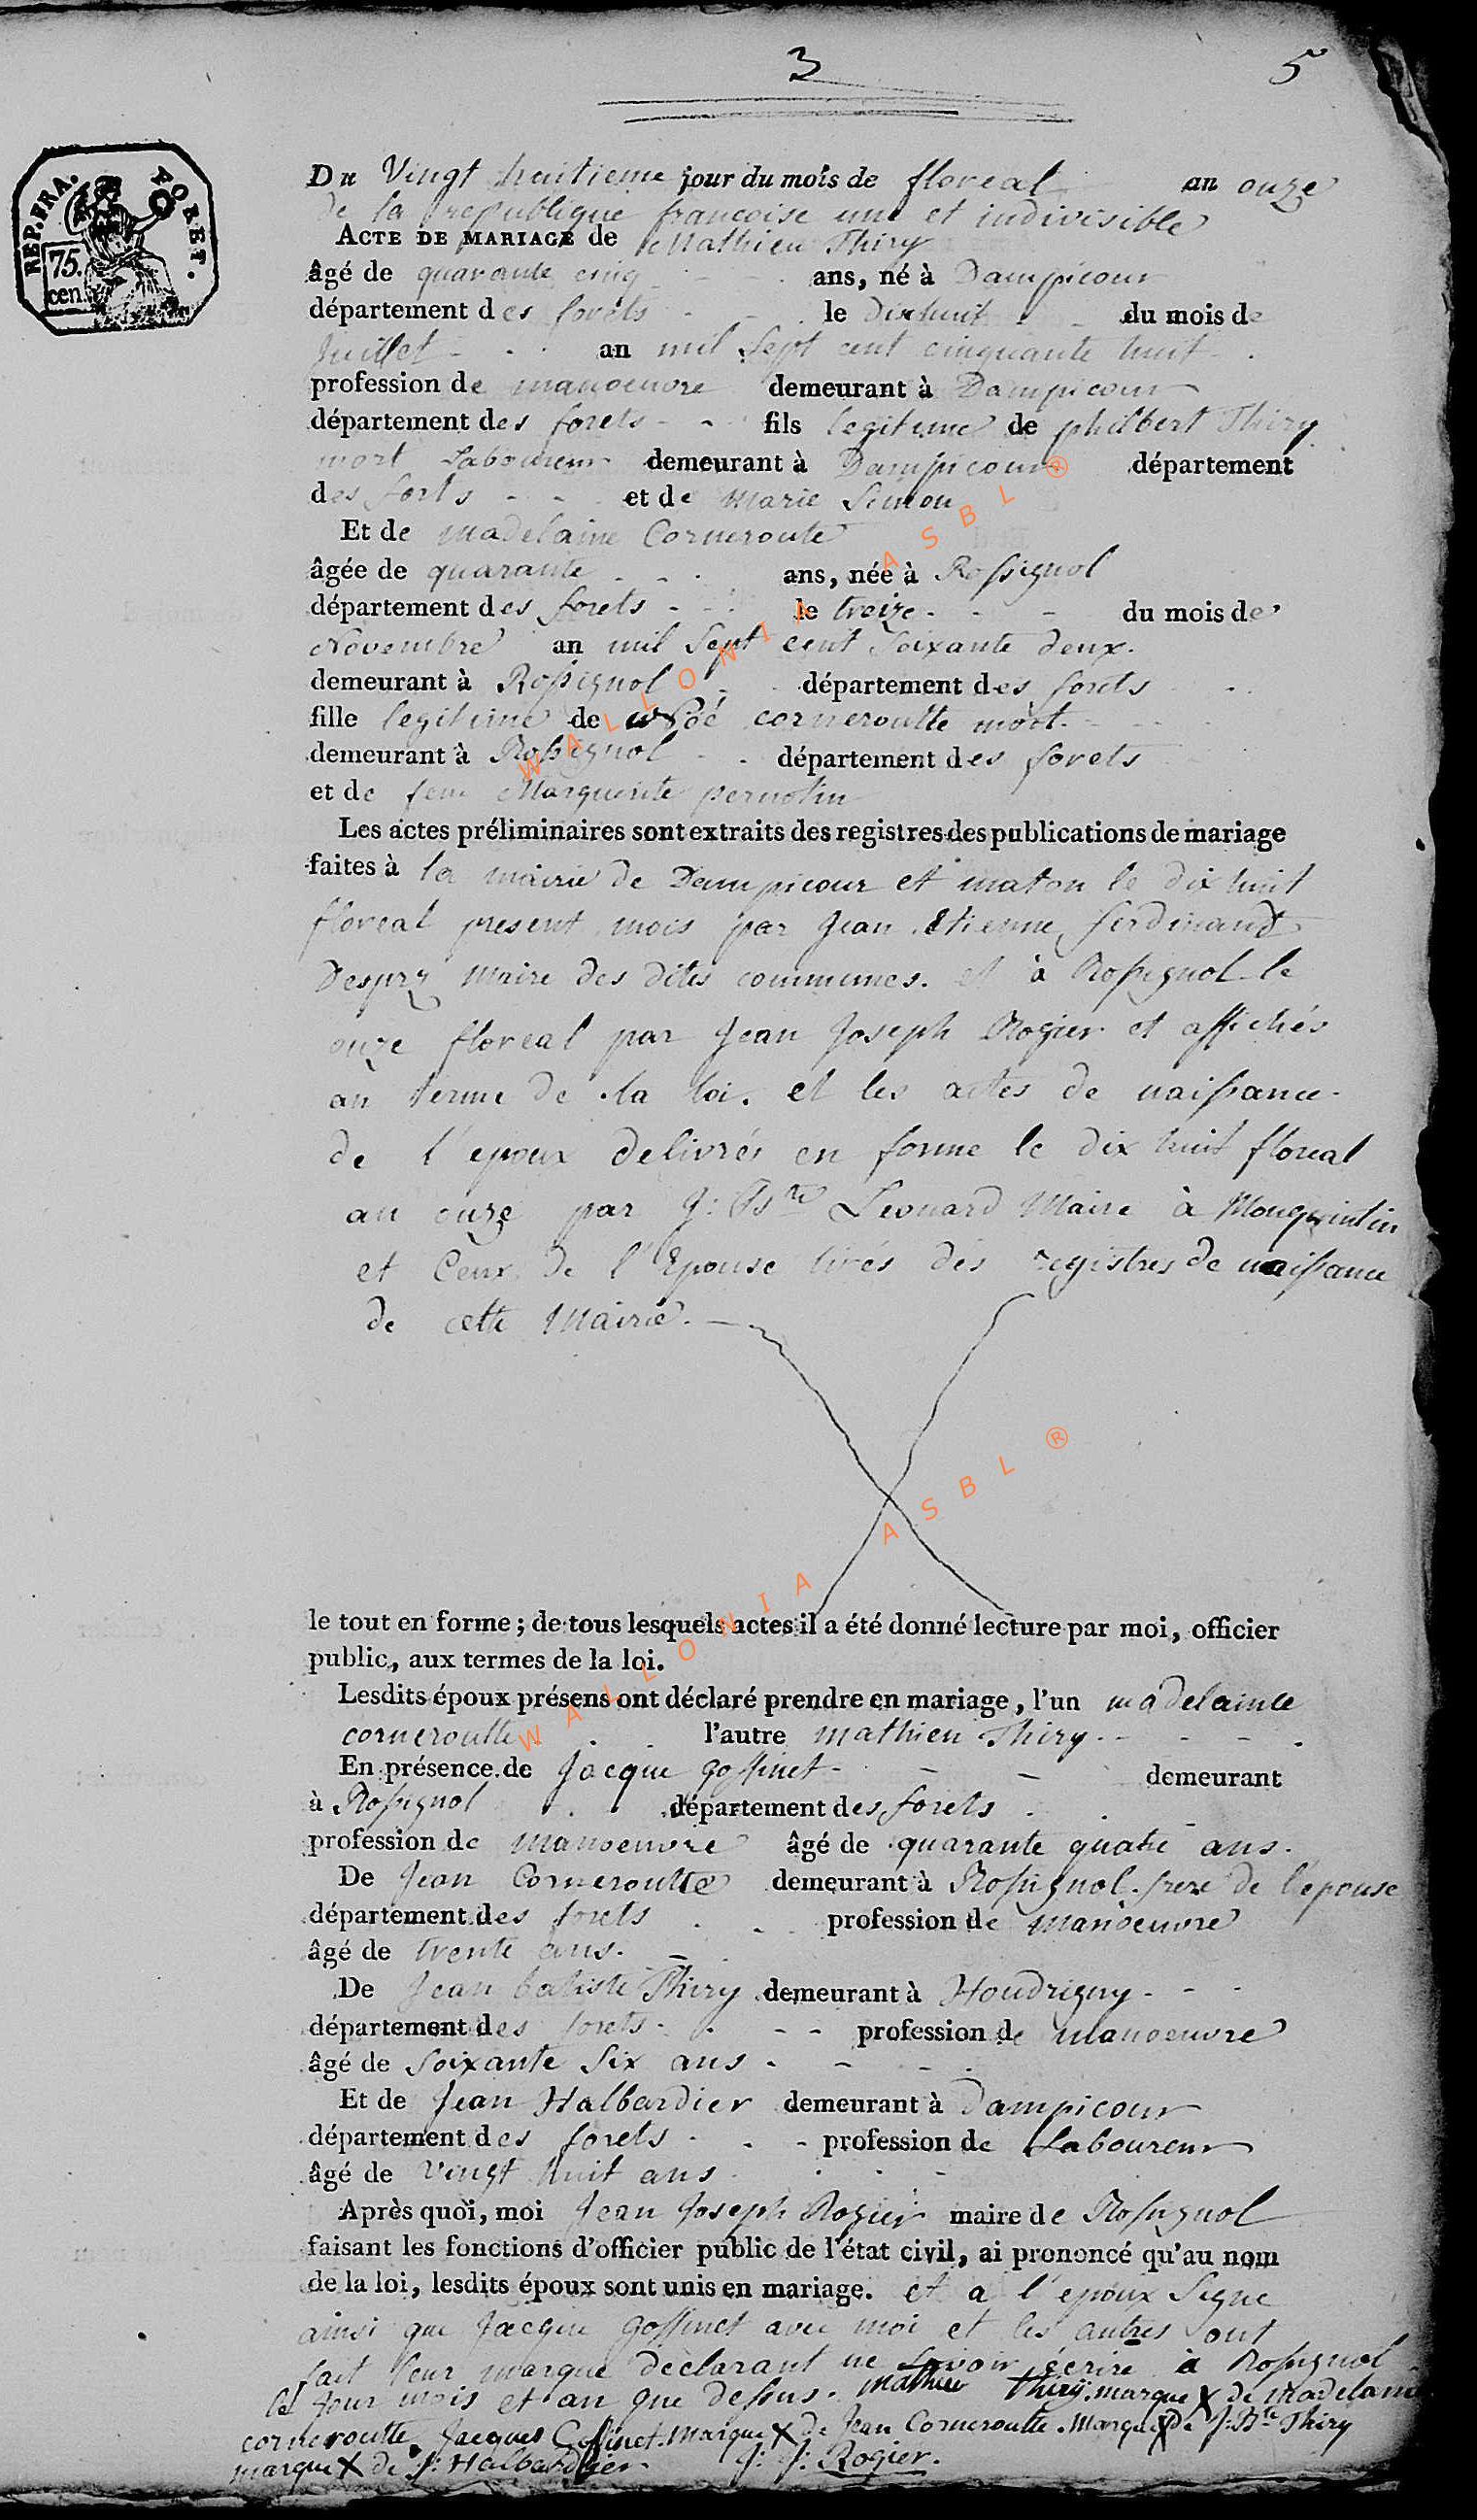 3
5
REP. FRA.
FORET.
75.
cen.
Du Vingt huitieme jour du mois de floreal an onze
de la republique francoise une et indivisible
ACTE DE MARIAGE de Mathieu Thiry
âgé de quarante cinq ans, né à Dampicour
département des forets le dixhuit du mois de
Juillet an mil sept cent cinquante huit
profession de manoeuvre demeurant à Dampicour
département des forets fils legitime de philbert Thiry
mort Laboureur demeurant à Dampicour département
des forets et de marie Simon
Et de madelaine Corneroute
âgée de quarante ans, née à Rossignol
département des forets le treize du mois de
Novembre an mil Sept cent Soixante deux.
demeurant à Rossignol département des forets
fille legitime de corneroutte mort
demeurant à Rossignol département des forets
et de feue Marguerite
Les actes préliminaires sont extraits des registres des publications de mariage
faites à la mairie de Dampicour et maton le dix huit
floreal present mois par Jean Etienne ferdinand
Despry Maire des dites communes. et à Rossignol le
onze floreal par Jean Joseph Rogier et affichés
au terme de la loi. et les actes de naissance
de l'epoux delivrés en forme le dix huit floreal
an onze par J: Bste Leonard Maire à Monquintin
et Ceux de l'Epouse tirés des registres de naissance
de cette Mairie.
le tout en forme; de tous lesquels actes il a été donné lecture par moi, officier
public, aux termes de la loi.
Lesdits époux présens ont déclaré prendre en mariage, l'un madelainle
corneroutte l'autre mathieu Thiry
En présence de Jacque goffinet demeurant
à Rossignol département des forets
profession de manoeuvre âgé de quarante quatre ans.
De Jean Corneroutte demeurant à Rossignol. frere de l'epouse
département des forets profession de manoeuvre
âgé de trente ans.
De Jean batiste Thiry demeurant à Houdrigny
département des forets profession de manoeuvre
âgé de Soixante Six ans
Et de Jean Halbardier demeurant à Dampicour
département des forets profession de Laboureur
âgé de vingt huit ans
Après quoi, moi Jean Joseph Rogier maire de Rossignol
faisant les fonctions d'officier public de l'état civil, ai prononcé qu'au nom
de la loi, lesdits époux sont unis en mariage. et a l'epoux Signe
ainsi que Jacque goffinet avec moi et les autres ont
fait leur marque declarant ne savoir écrire à Rossignol
les jour mois et an que dessus. mathieu thiry. marque X de madelaine
corneroutte. Jacques Goffinet. marque X de Jean Corneroutte. Marque X de J: Bte Thiry
marque X de J: Halbardier J: J: Rogier.
WALLONIA ASBL ®
WALLONIA ASBL ®